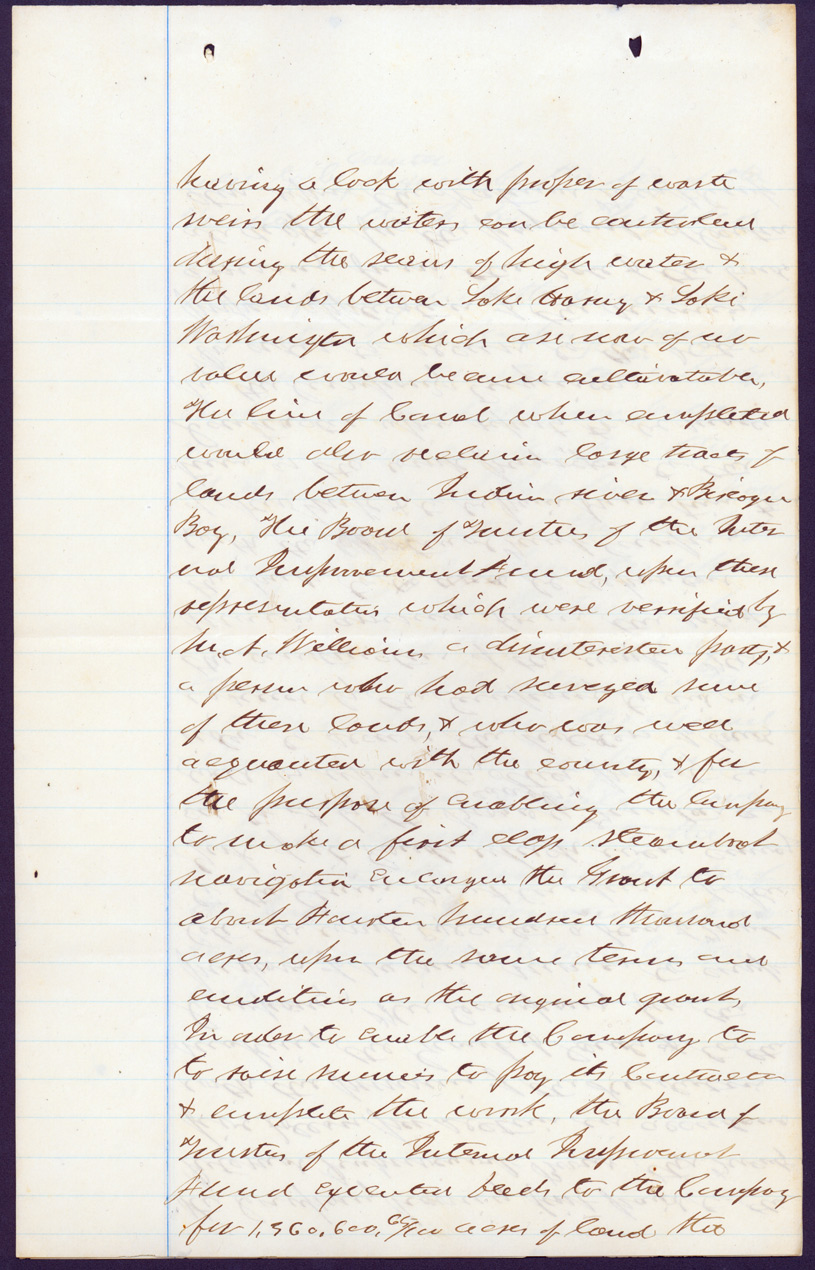 having a lock with proper of waste
weirs the waters can be controled
during the seasons of high water &
the lands between Lake Harney & Lake
Washington which are now of no
value would became cultivatable,
The line of Canal when completed
would also reclaim large tracts of
lands between Indian river & Biscayne
Bay, The Board of Trustees of the Inter
nal Improvement Fund, upon these
representatives which were verrified by
M. A. Williams a disinterested party, &
a person who had surveyed some
of these lands, & who was well
acquainted with the county, & for
the purpose of enabling the Company
to make a first class steamboat
navigation enlarged the Grant to
about Fourteen hundred thousand
acres, upon the same terms and
conditions as the original grant,
In order to enable the Company to
to raise monies to pay its Contractor
& complete the work, the Board of
Trustees of the Internal Improvement
Fund executed Deeds to the Company
for 1,360,600, 60/100 acres of land the